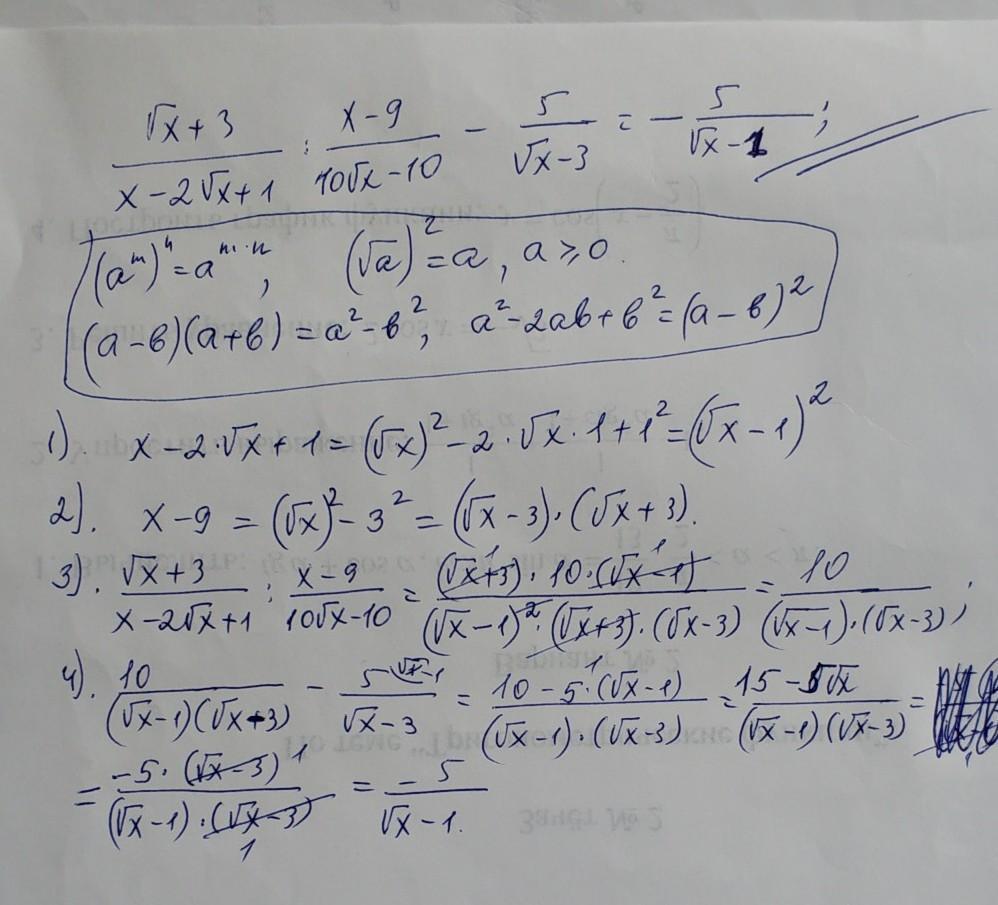 (√x + 3)/(x − 2√x + 1) : (x − 9)/(10√x − 10) − 5/(√x − 3) = − 5/(√x − 1);
(aᵐ)ⁿ = aᵐ·ⁿ, (√a)² = a, a ⩾ 0.
(a − в)(a + в) = a² − в²; a² − 2aв + в² = (a − в)²
1). x − 2·√x + 1 = (√x)² − 2·√x·1 + 1² = (√x − 1)²
2). x − 9 = (√x)² − 3² = (√x − 3)·(√x + 3).
3). (√x + 3)/(x − 2√x + 1) : (x − 9)/(10√x − 10) = ((√x + 3)¹·10·(√x − 1)¹)/((√x − 1)²·(√x + 3)·(√x − 3)) = 10/((√x − 1)·(√x − 3));
4). 10/((√x − 1)(√x − 3)) − 5 √x − 1/(√x − 3) = (10 − 5·(√x − 1))/((√x − 1)·(√x − 3)) = (15 − 5√x)/((√x − 1)(√x − 3)) =
= (−5·(√x − 3) 1)/((√x − 1)·(√x − 3) 1) = −5/(√x − 1).